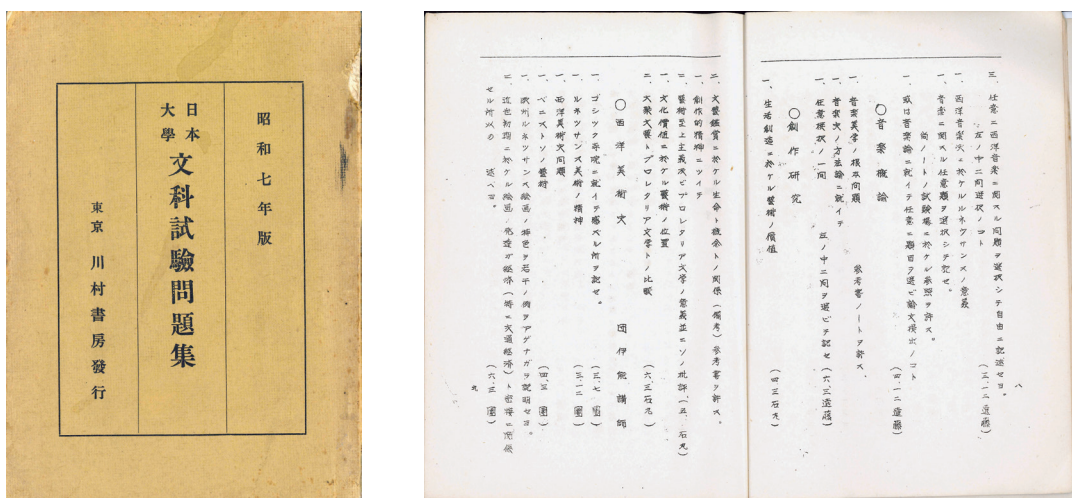 昭和七年版
日本大學 文科試驗問題集
東京 川村書房發行
三、任意ニ西洋音楽ニ関スル問題ヲ選択シテ自由ニ記述セヨ。
左ノ中二問選択ノコト (三、一二 遠藤)
一、西洋音楽史上ニ於ケルルネッサンスノ意義
一、音楽ニ関スル任意題ヲ選択シテ記セ。
尚ノートノ試験場ニ於ケル参照ヲ許ス。
一、或ハ音楽論ニ就イテ任意ニ題目ヲ選ビ論文提出ノコト
(四、一二 遠藤)
〇音楽概論
一、音楽美学ノ根本問題 参考書ノートヲ許ス、
一、音楽史ノ方法論ニ就イテ
一、任意選択ノ一問 左ノ中二問ヲ選ビテ記セ (六、三 遠藤)
〇創作研究
一、生活創造ニ於ケル藝術ノ價値 (四、三 石丸)
八
二、文藝鑑賞ニ於ケル生命ト概念トノ関係 (備考) 参考書ヲ許ス。
一、創作的精神ニツイテ
二、藝術至上主義及ビプロレタリア文学ノ意義並ニソノ批評 (五、石丸)
一、文化價値ニ於ケル藝術ノ位置
二、大衆文藝トプロレタリア文学トノ比較 (六、三 石丸)
〇西洋美術史 団伊能講師
一、ゴシック寺院ニ就イテ感ズル所ヲ記セ。 (三、七 團)
一、ルネッサンス美術ノ精神 (三、一二 團)
一、西洋美術史問題
一、ベニストソノ藝術 (四、三 團)
一、欧州ルネッサンス絵画ノ特色ヲ若干ノ例ヲアゲナガラ説明セヨ
二、近世初期ニ於ケル絵画ノ発達ガ経済(特ニ交通経済)ト密接ニ関係
セル所以ヲ 述ベヨ。 (六、三 團)
九